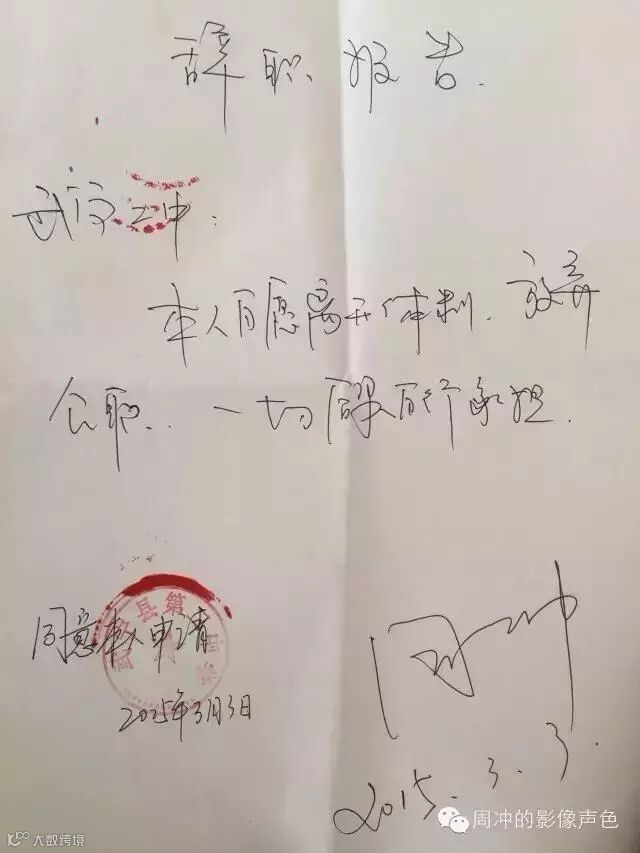 辞职报告.
武宁二中:
本人自愿离开体制、放弃
公职. 一切后果自行承担.
县第
同意本人申请
2015年3月3日
周冲
2015.3.3.
周冲的影像声色
大数跨境